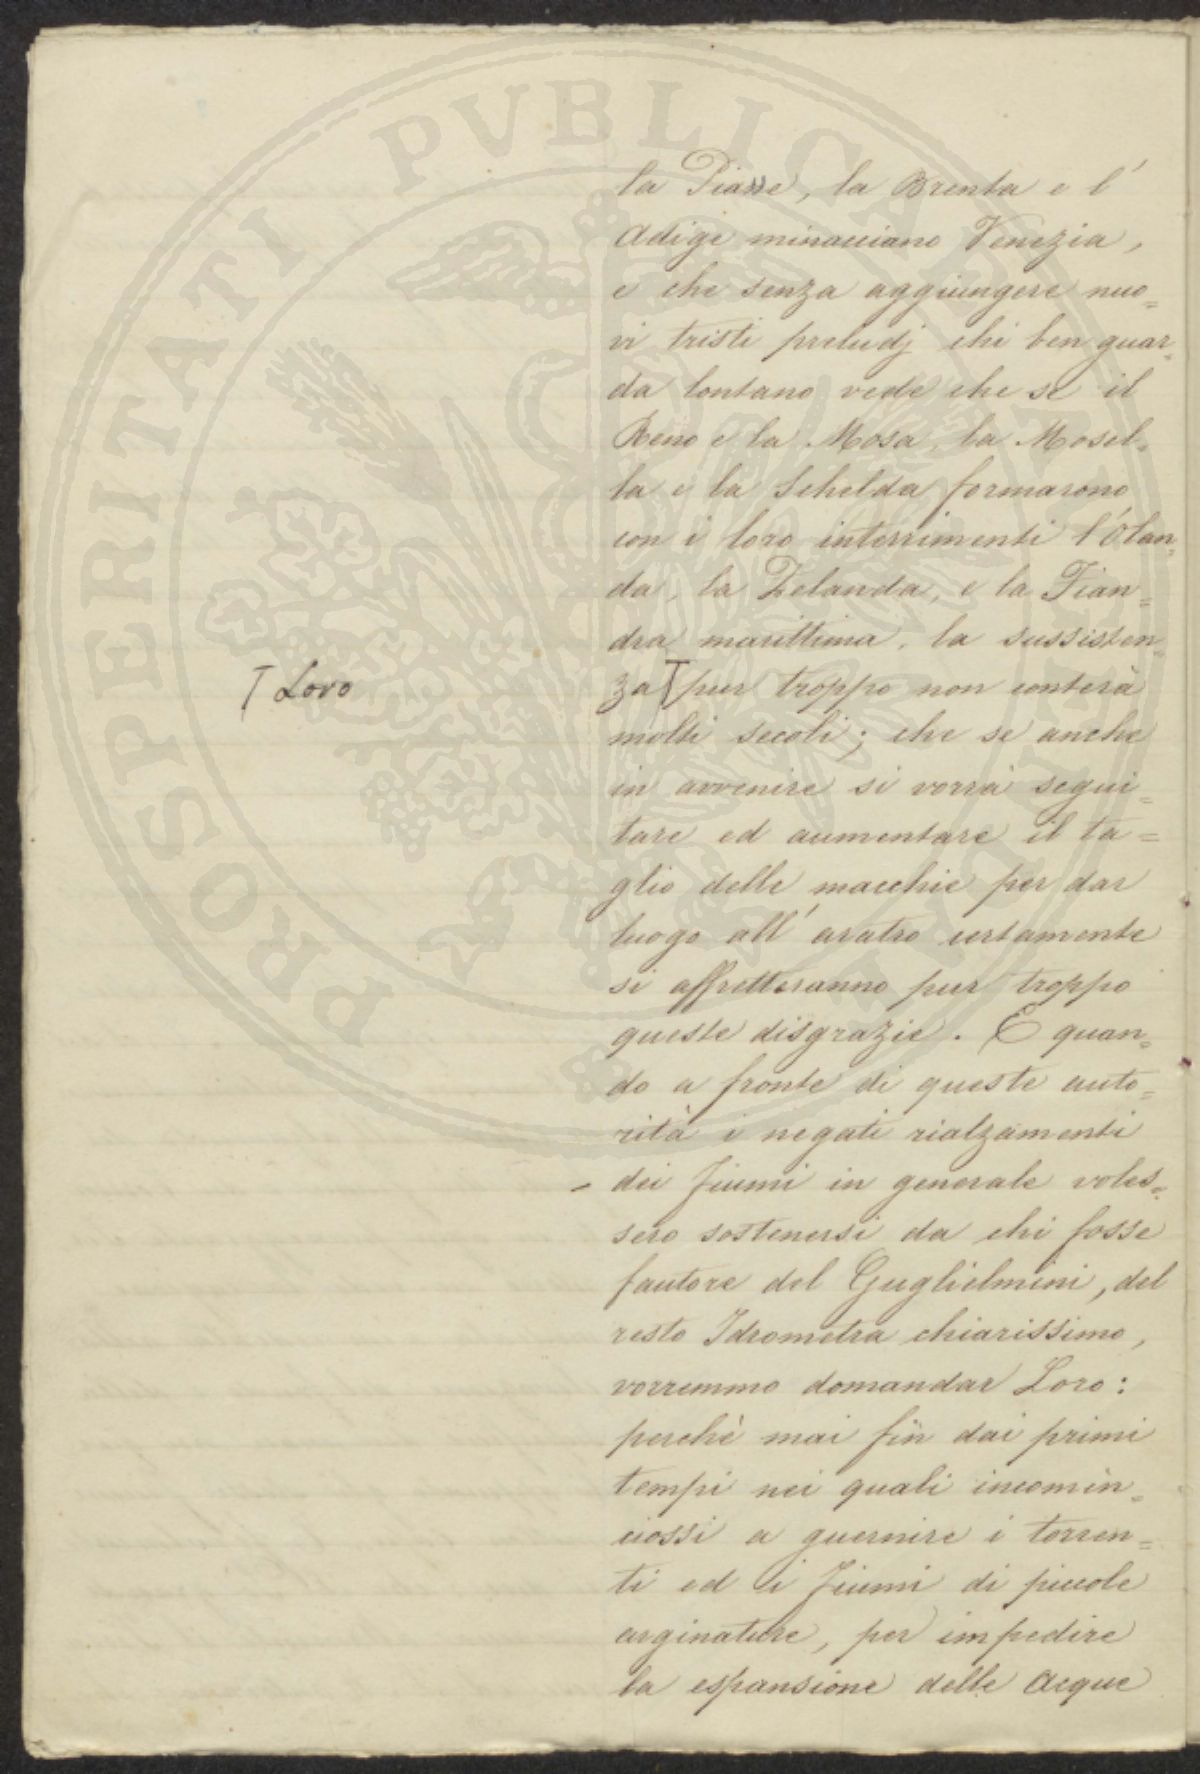 PROSPERITATI PVBLICAE
la Piave, la Brenta e l'
Adige minacciano Venezia,
e che senza aggiungere nuo=
vi tristi preludj chi ben guar=
da lontano vede che se il
Reno e la Mosa, la Mosel=
la e la Schelda formarono
con i loro interrimenti l'Olan=
da, la Zelanda, e la Fian=
dra marittima, la sussisten=
T Loro
za T pur troppo non conterà
molti secoli; che se anche
in avvenire si vorrà segui=
tare ed aumentare il ta=
glio delle macchie per dar
luogo all'aratro certamente
si affretteranno pur troppo
queste disgrazie. E quan=
do a fronte di queste auto=
rità i negati rialzamenti
- dei fiumi in generale voles=
sero sostenersi da chi fosse
fautore del Guglielmini, del
resto Idrometra chiarissimo,
vorremmo domandar Loro:
perchè mai fin dai primi
tempi nei quali incomin=
ciossi a guernire i torren=
ti ed i fiumi di piccole
arginature, per impedire
la espansione delle Acque